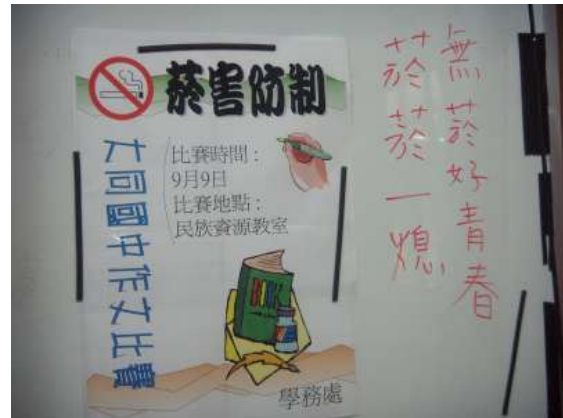 菸害防制
大同國中作文比賽
比賽時間：
9月9日
比賽地點：
民族資源教室
BOOK
學務處
無菸好青春
菸菸一熄